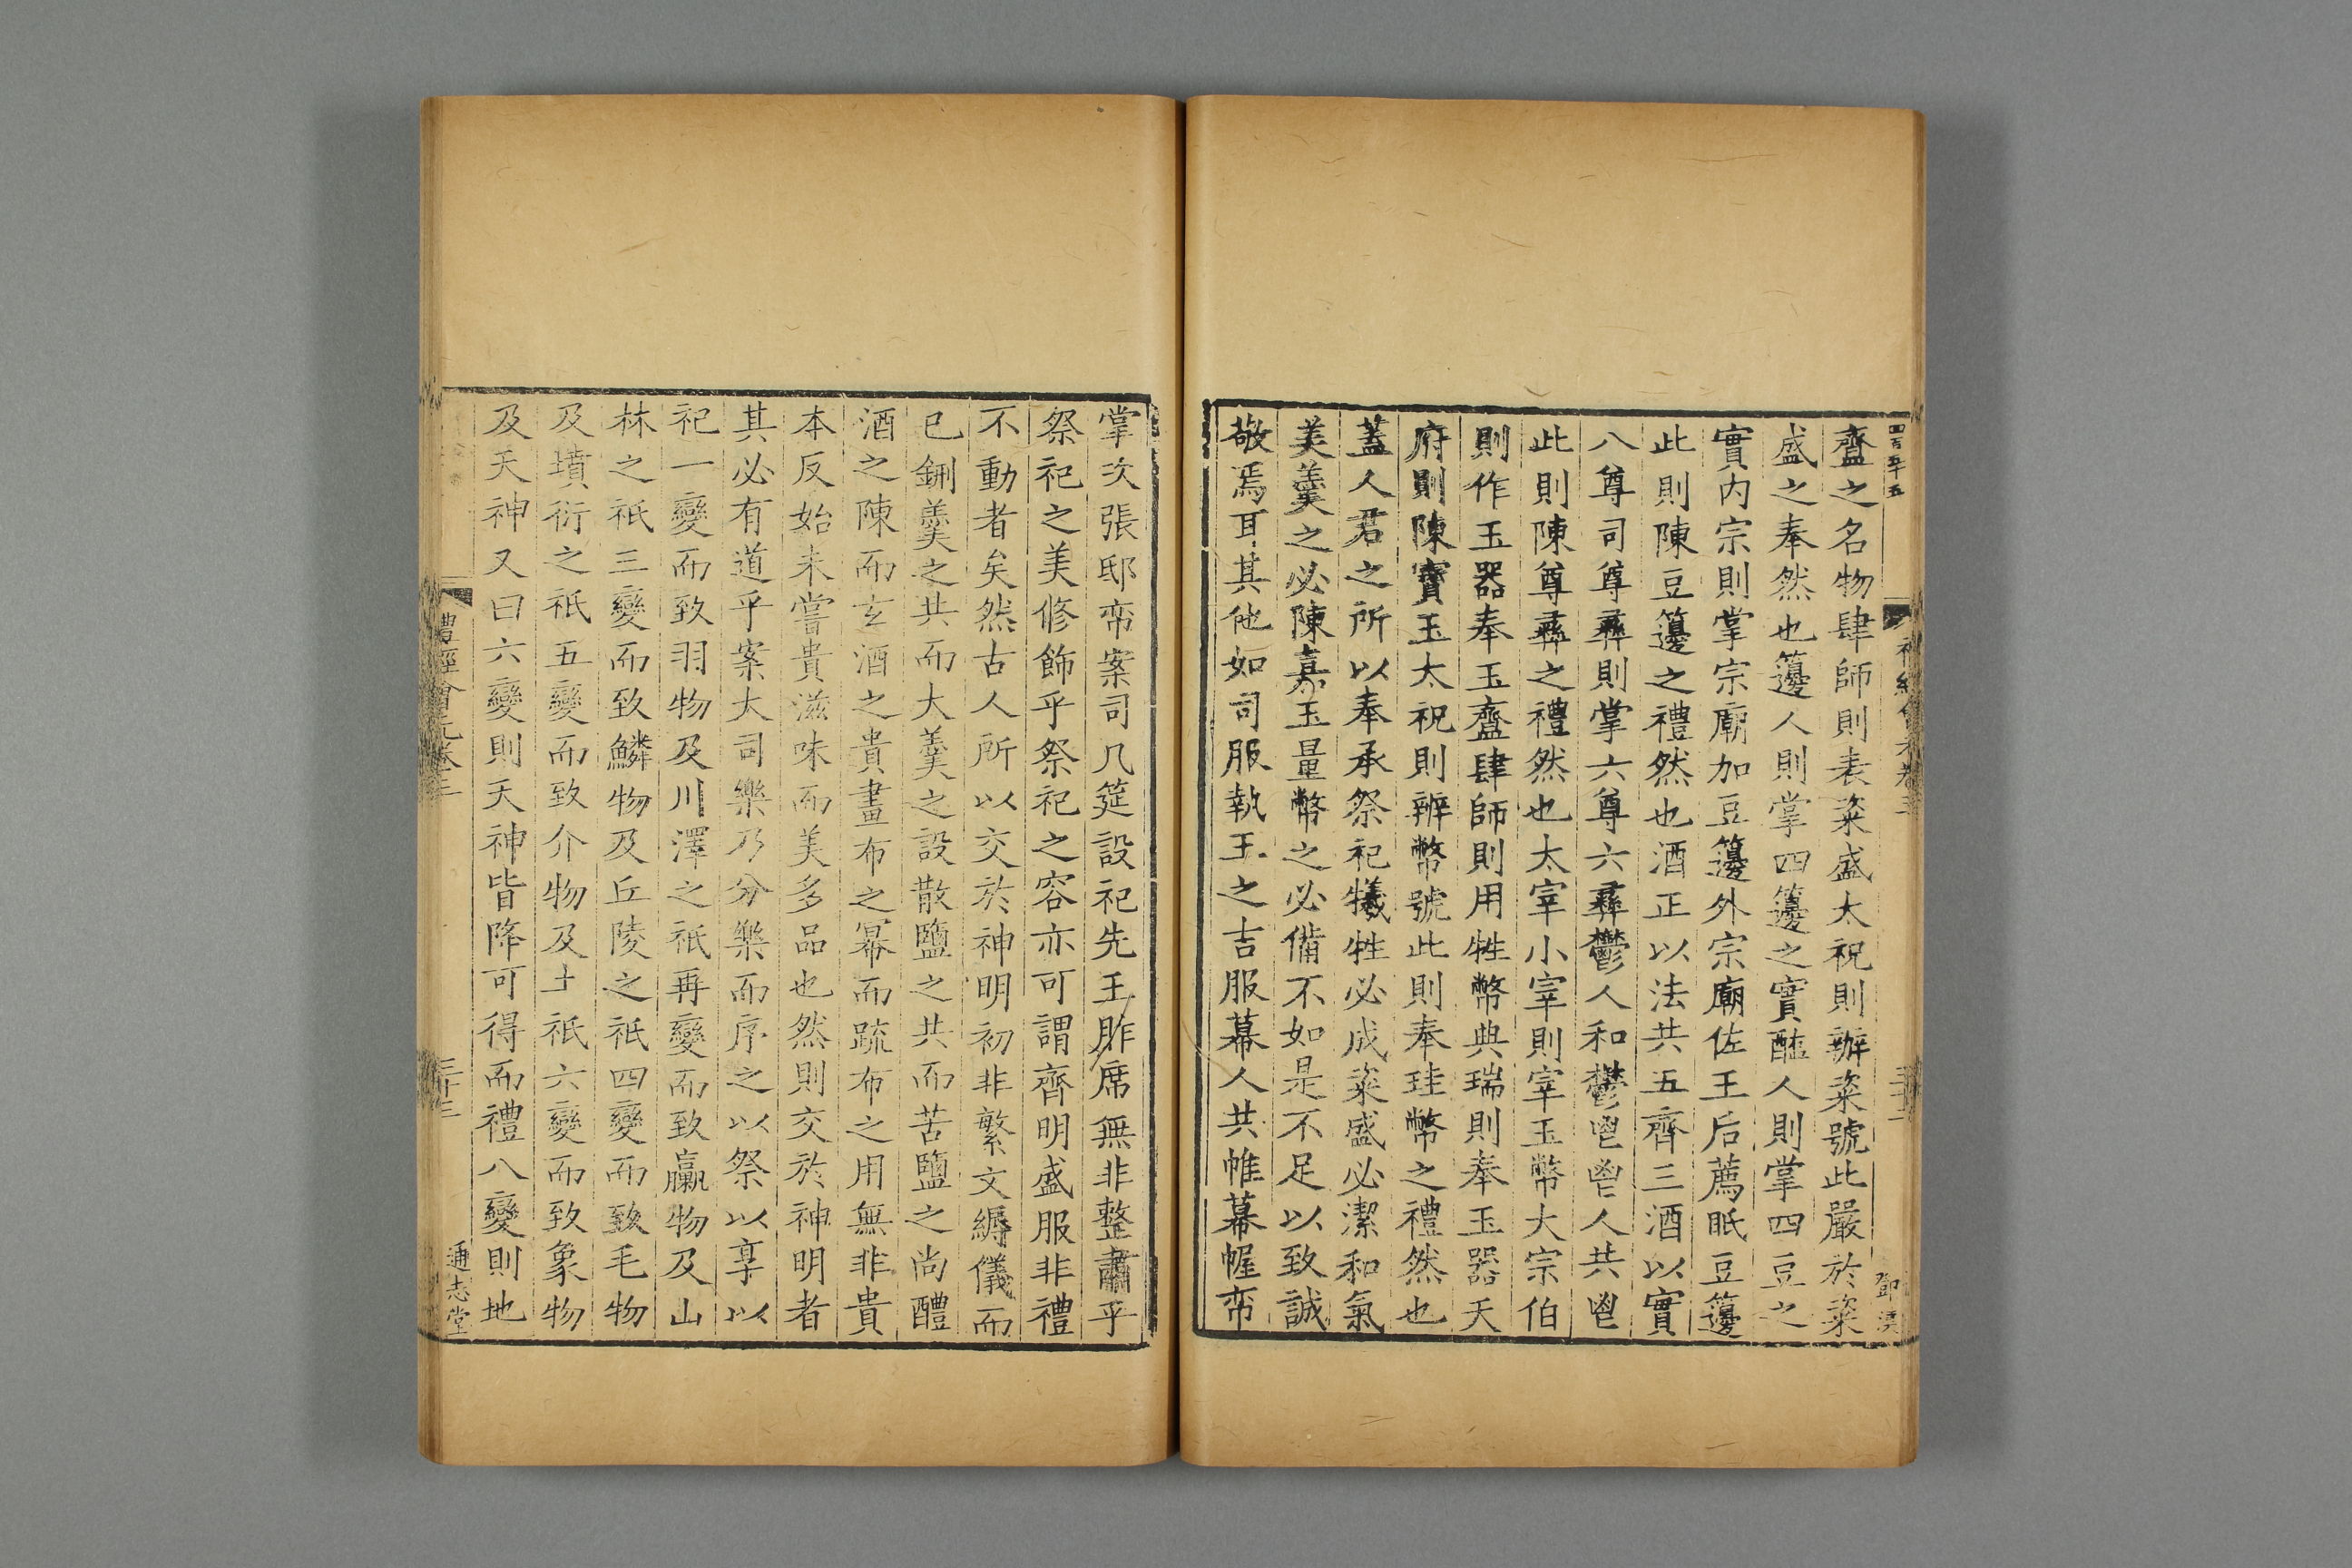 四百五十五
齍之名物肆師則表粢盛太祝則辦粢號此嚴於粢
盛之奉然也籩人則掌四籩之實醢人則掌四豆之
實内宗則掌宗廟加豆籩外宗廟佐王后薦眂豆籩
此則陳豆籩之禮然也酒正以法共五齊三酒以實
八尊司尊彞則掌六尊六彞鬱人和鬱鬯鬯人共鬯
此則陳尊彞之禮然也太宰小宰則宰玉幣大宗伯
則作玉器奉玉齍肆師則用牲幣典瑞則奉玉器天
府則陳寶玉太祝則辨幣號此則奉珪幣之禮然也
蓋人君之所以奉承祭祀犧牲必成粢盛必潔和氣
美羮之必陳嘉玉量幣之必備不如是不足以致誠
敬焉耳其他如司服執王之吉服幕人共帷幕幄帟
掌次張邸帟案司几筵設祀先王胙席無非整肅乎
祭祀之美修飾乎祭祀之容亦可謂齊明盛服非禮
不動者矣然古人所以交於神明初非繁文縟儀而
已鉶羮之共而大羮之設散鹽之共而苦鹽之尚醴
酒之陳而玄酒之貴畫布之冪而疏布之用無非貴
本反始未嘗貴滋味而美多品也然則交於神明者
其必有道乎案大司樂乃分樂而序之以祭以享以
祀一變而致羽物及川澤之祇再變而致臝物及山
林之祇三變而致鱗物及丘陵之祇四變而致毛物
及墳衍之祇五變而致介物及土祇六變而致象物
及天神又曰六變則天神皆降可得而禮八變則地
禮經會元卷三
三十三
通志堂